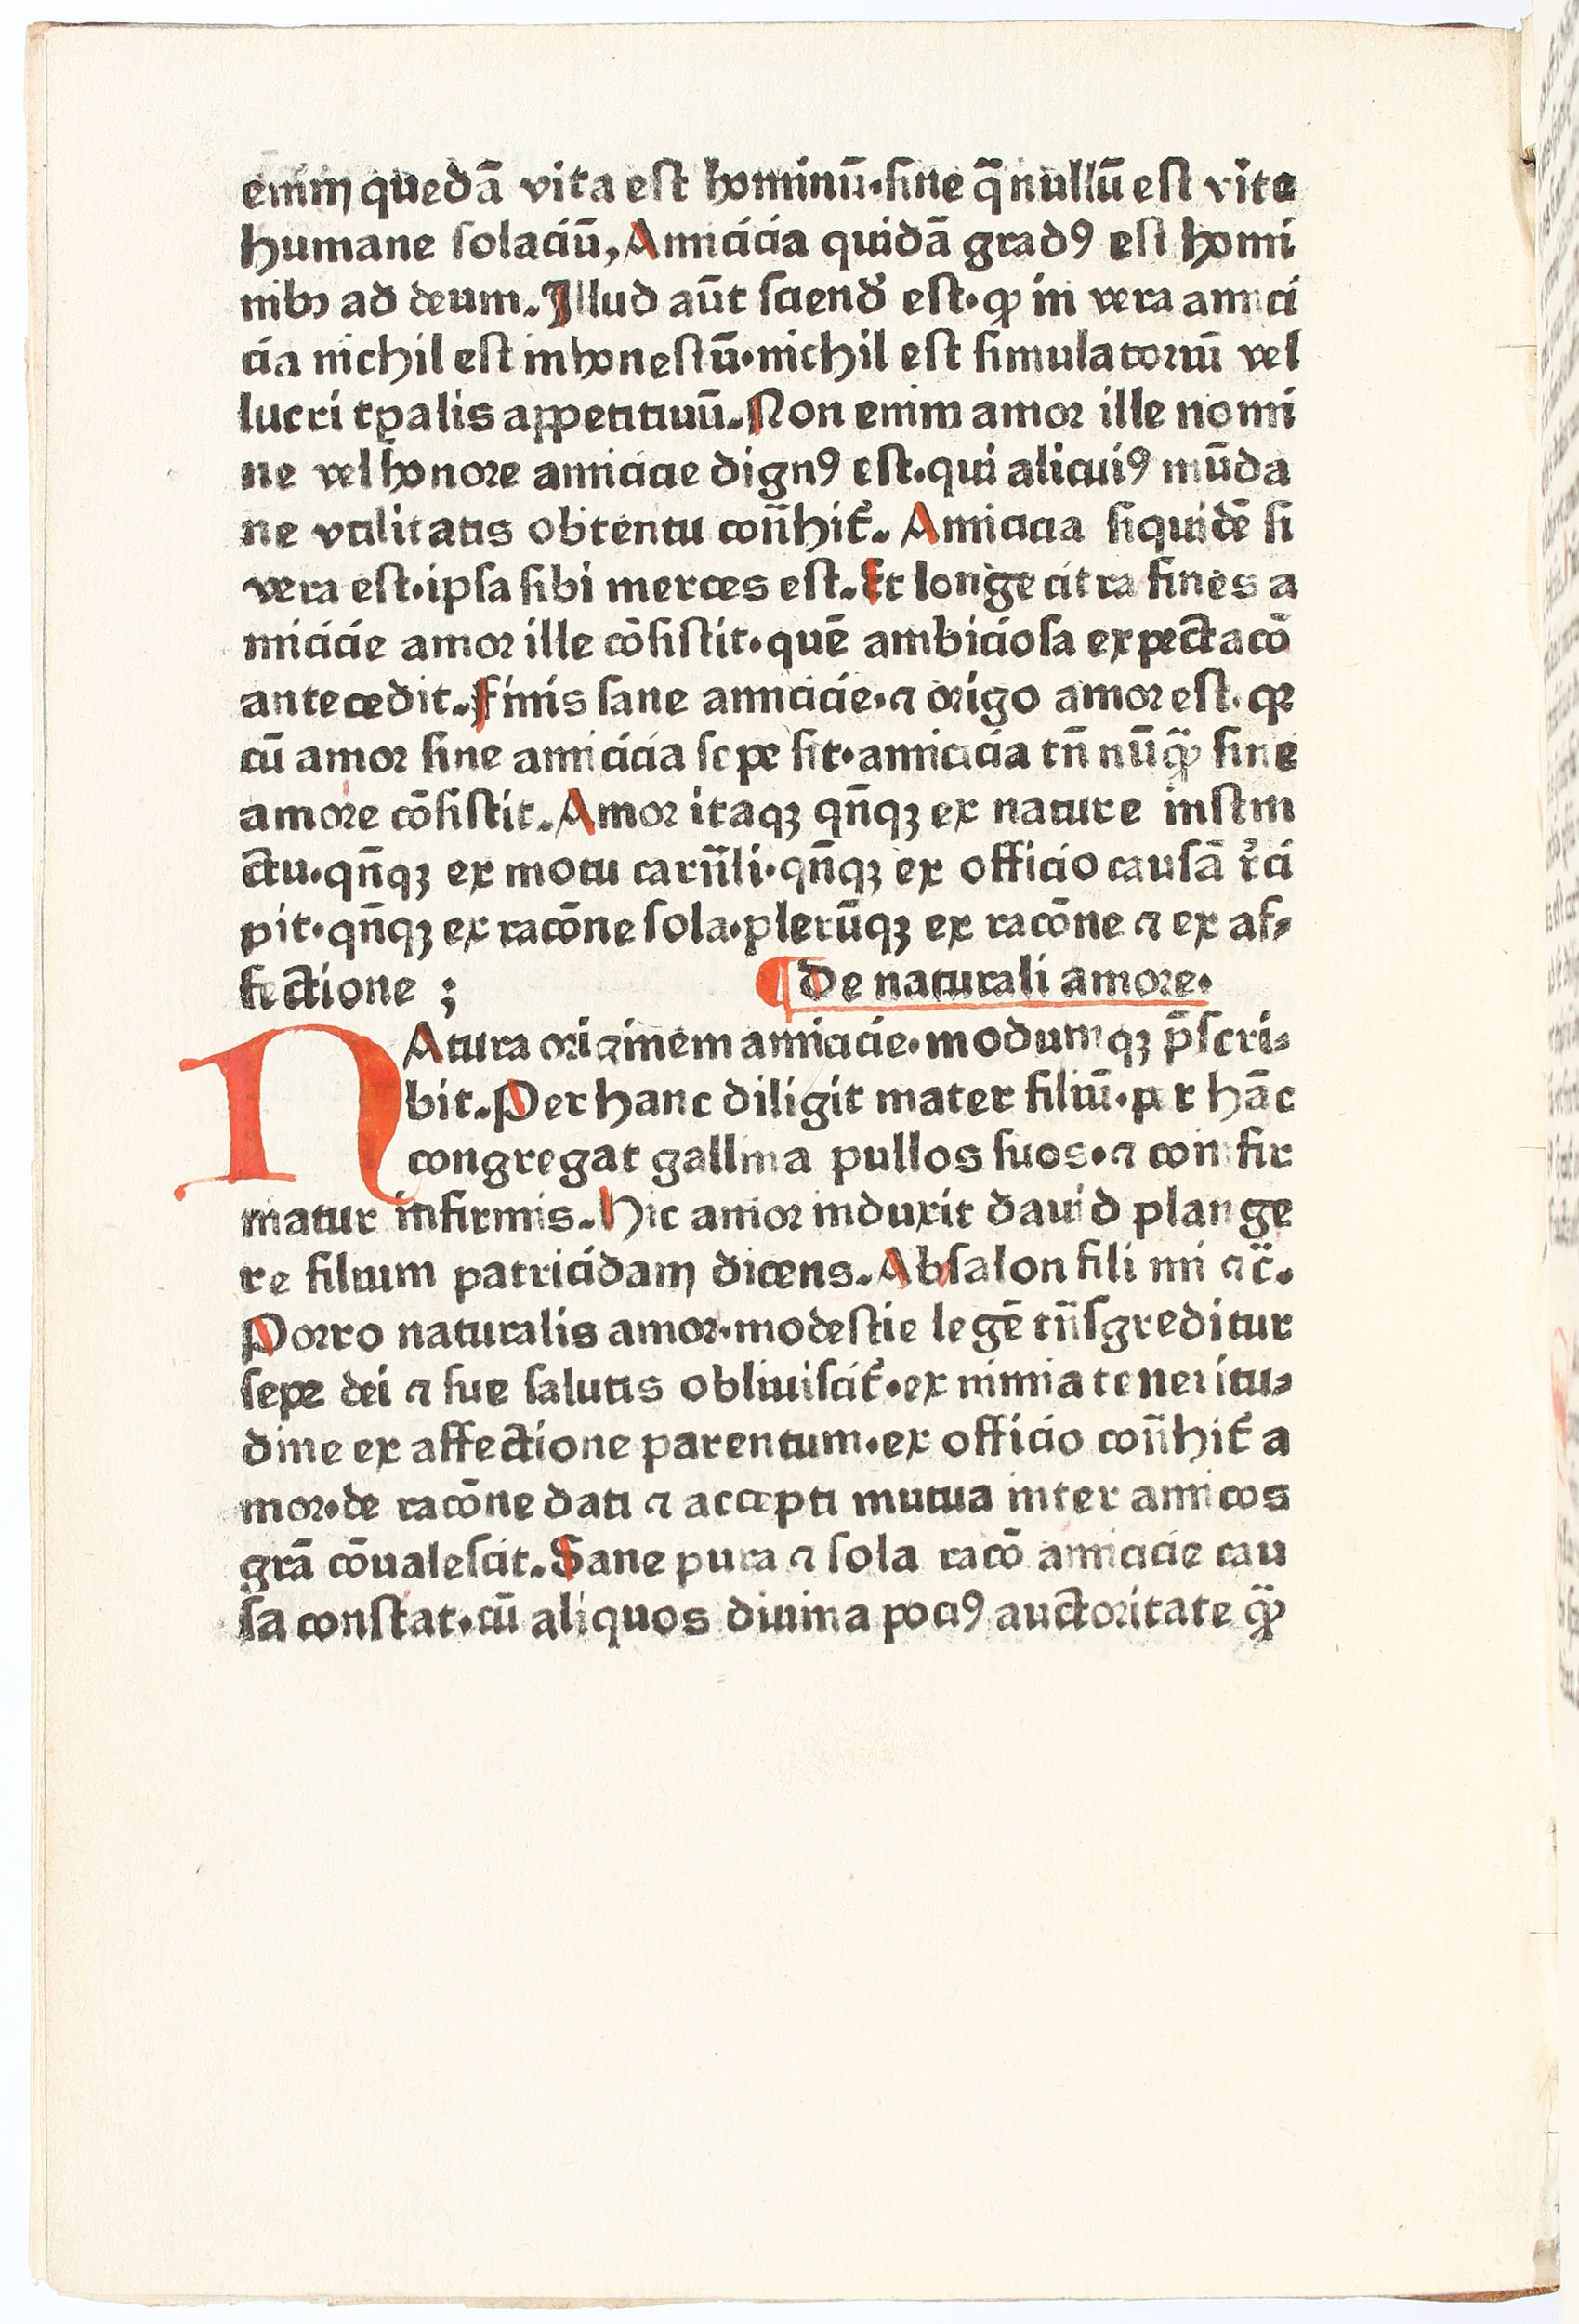 enim quedā vita est hominū·sine q̄ nullū est vite
humane solaciū, Amicicia quidā gradꝰ est homi
nibꝫ ad deum. Illud aūt sciend̄ est·ꝙ in vera amici
cia nichil est inhonestū·nichil est simulatoriū vel
lucri tꝑalis appetitiuū. Non enim amor ille nomi
ne vel honore amicicie dignꝰ est·qui alicuiꝰ mūda
ne vtilitatis obtentu con̄hit᷑. Amicicia siquidē si
vera est·ipsa sibi merces est. Et longe citra fines a
micicie amor ille cōsistit·quē ambiciosa expectacō
antecedit. Finis sane amicicie·⁊ origo amor est·qꝛ
cū amor sine amicicia sepe sit·amicicia tn̄ nūꝙ̄ sine
amore cōsistit. Amor itaqꝫ qn̄qꝫ ex nature instin
ctu·qn̄qꝫ ex motu carn̄li·qn̄qꝫ ex officio causā r̓ci
pit·qn̄qꝫ ex racōne sola·plerūqꝫ ex racōne ⁊ ex af⸗
fectione ;
¶ De naturali amore·
NAtura originem amicicie·modumqꝫ p̄scri⸗
bit. Per hanc diligit mater filiū·per hāc
congregat gallina pullos suos·⁊ con infir
matur infirmis. Hic amor induxit dauid plange
re filium patricidam dicens. Absalon fili mi ⁊c̄.
Porro naturalis amor·modestie legē tn̄sgreditur
sepe dei ⁊ sue salutis obliuiscit᷑·ex nimia teneritu⸗
dine ex affectione parentum·ex officio con̄hit᷑ a
mor·de racōne dati ⁊ accepti mutua inter amicos
grā cōualescit. Sane pura ⁊ sola racō amicicie cau
sa constat·cū aliquos diuina pociꝰ auctoritate ꝙ̄